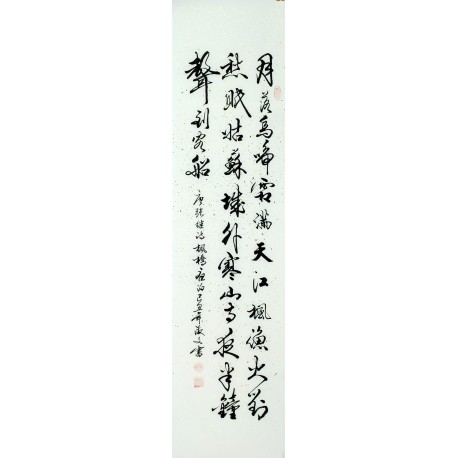 月落烏啼霜滿天江楓漁火對
愁眠姑蘇城外寒山寺夜半鐘
聲到客船
唐張继诗楓橋夜泊己丑年